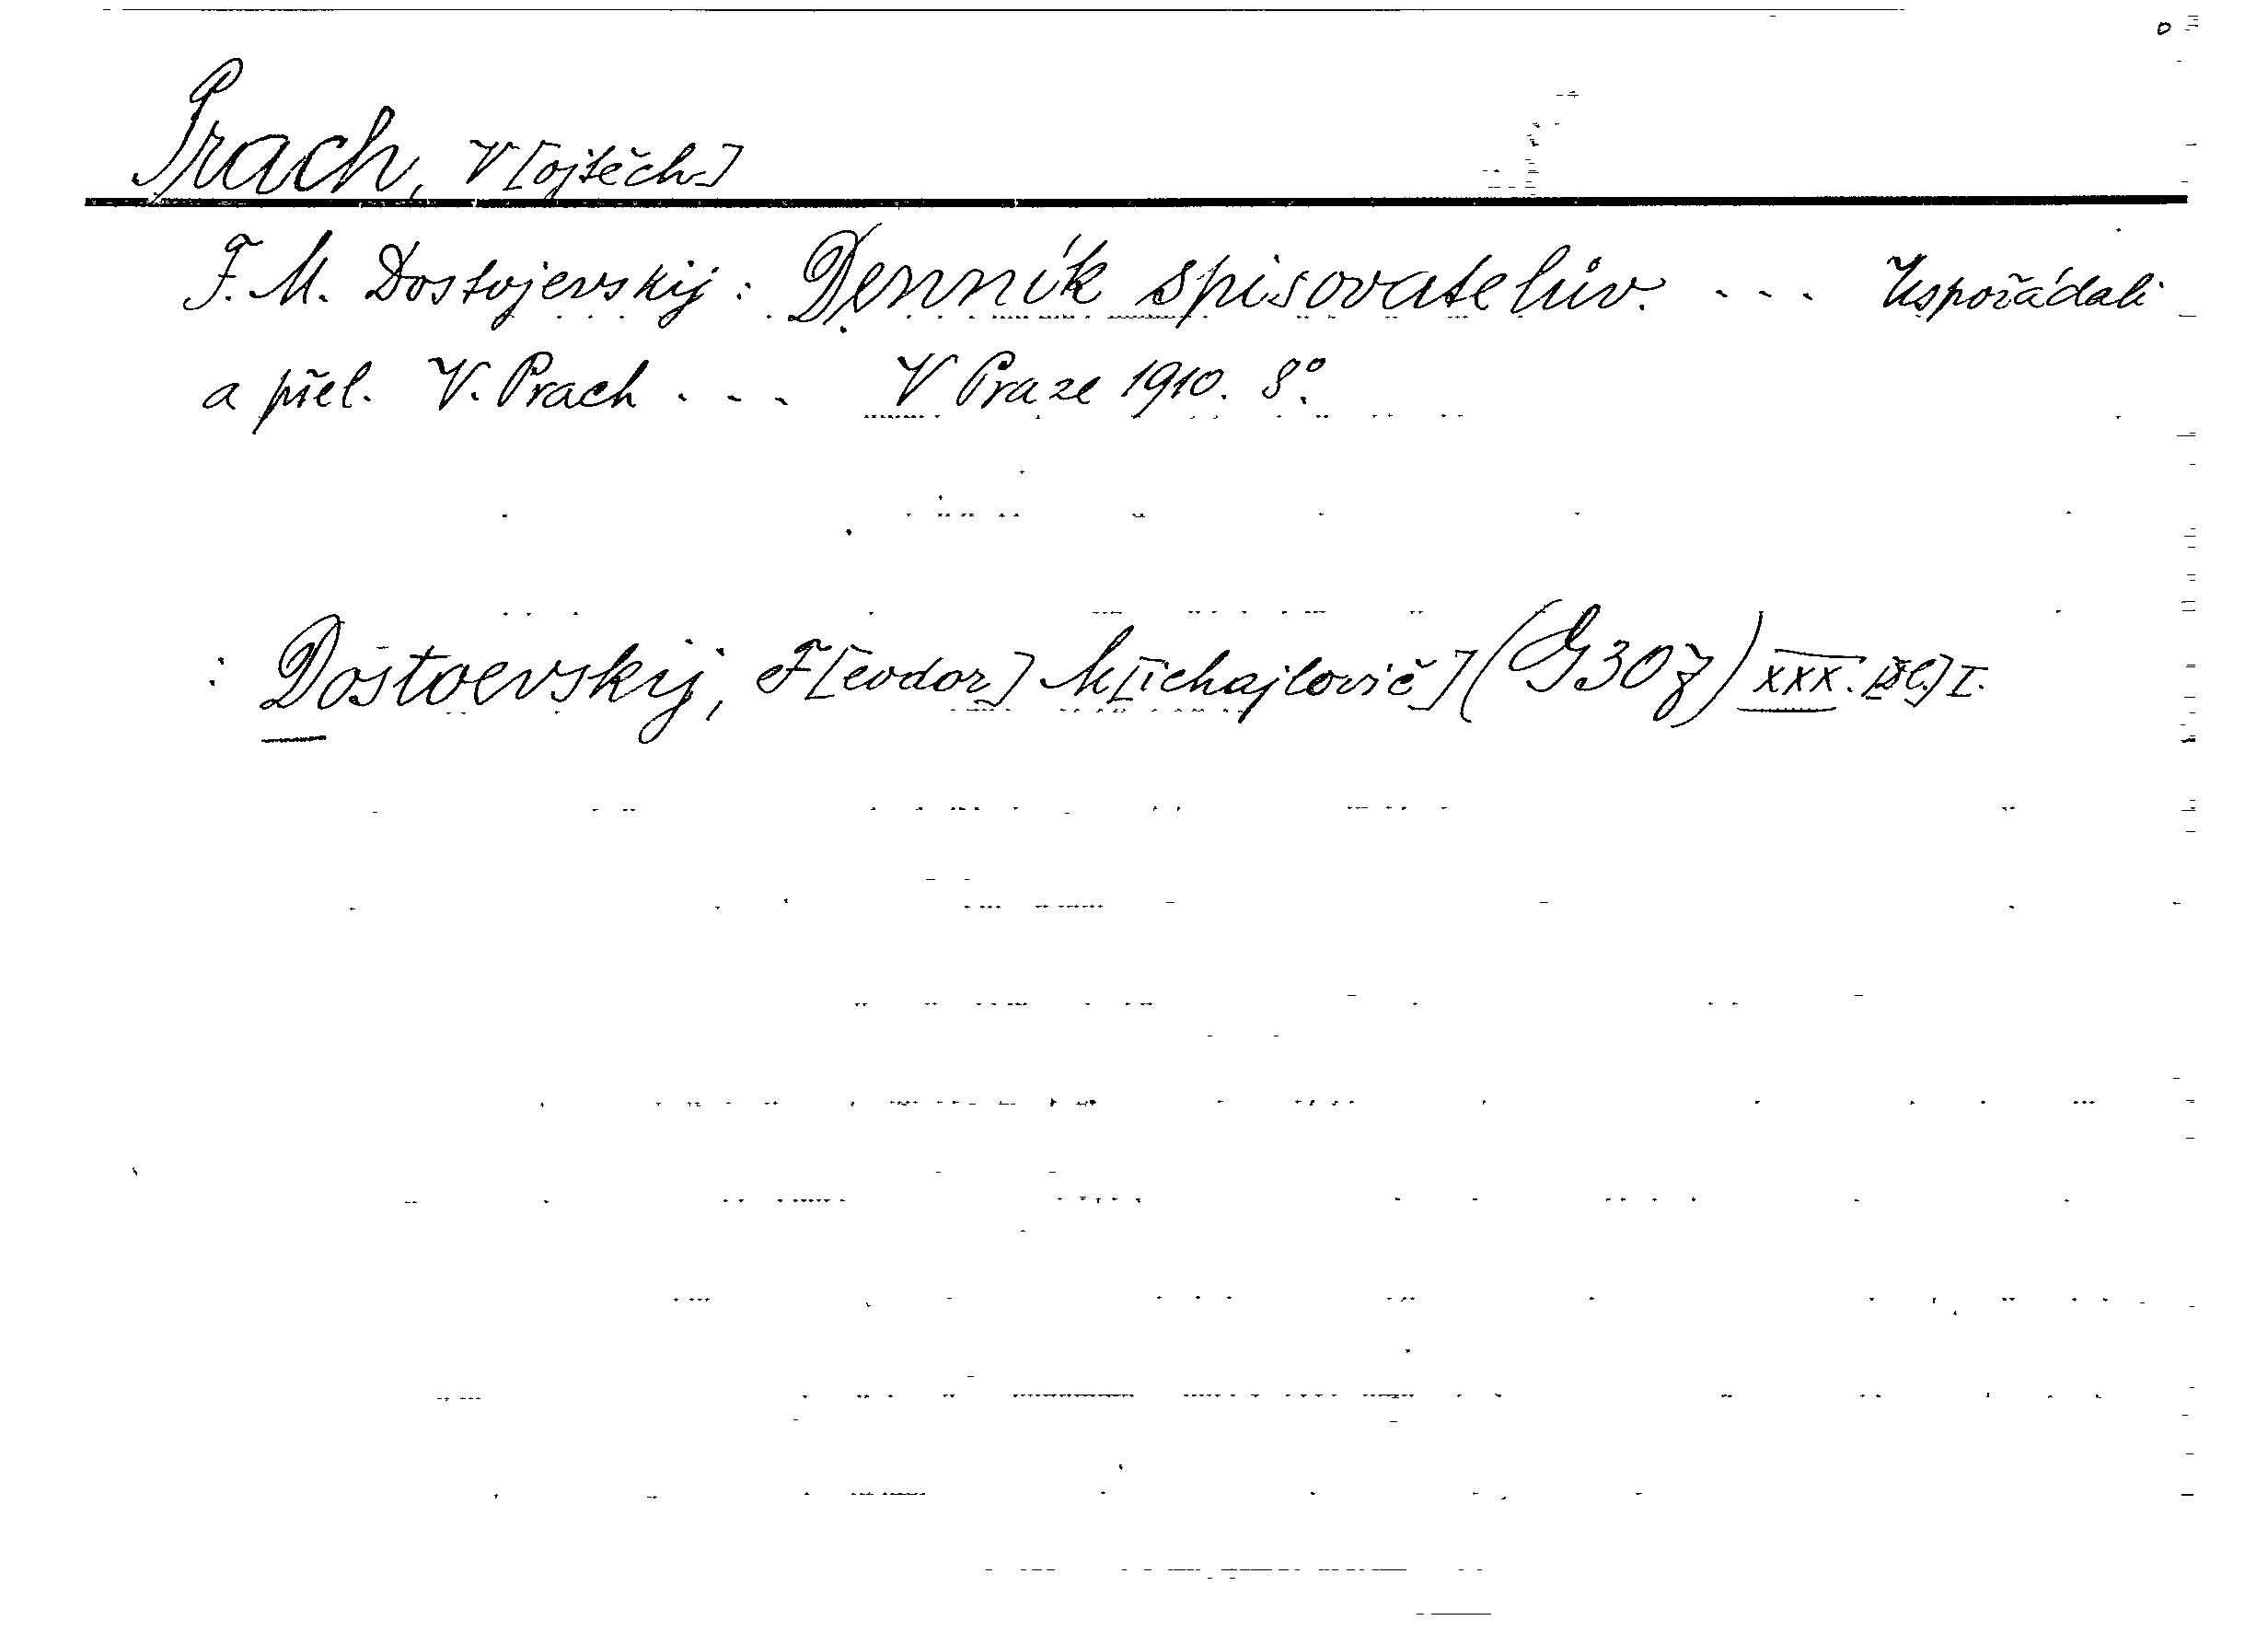 Prach, V[ojtěch]
F. M. Dostojevskij: Denník spisovatelův. ... Uspořádali
a přel. V. Prach ... V Praze 1910. 8°.
: Dostoevskij, F[eodor] M[ichajlovič] (G 30 z) XXX. I.